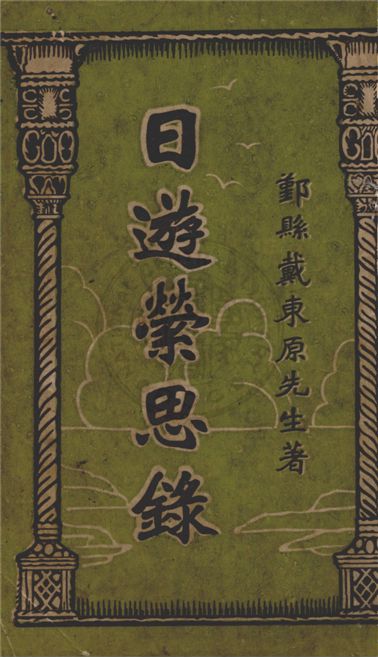 鄞縣戴東原先生著
日遊縈思錄